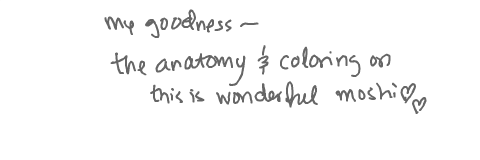 my goodness ~
the anatomy & coloring on
this is wonderful moshi♡♡